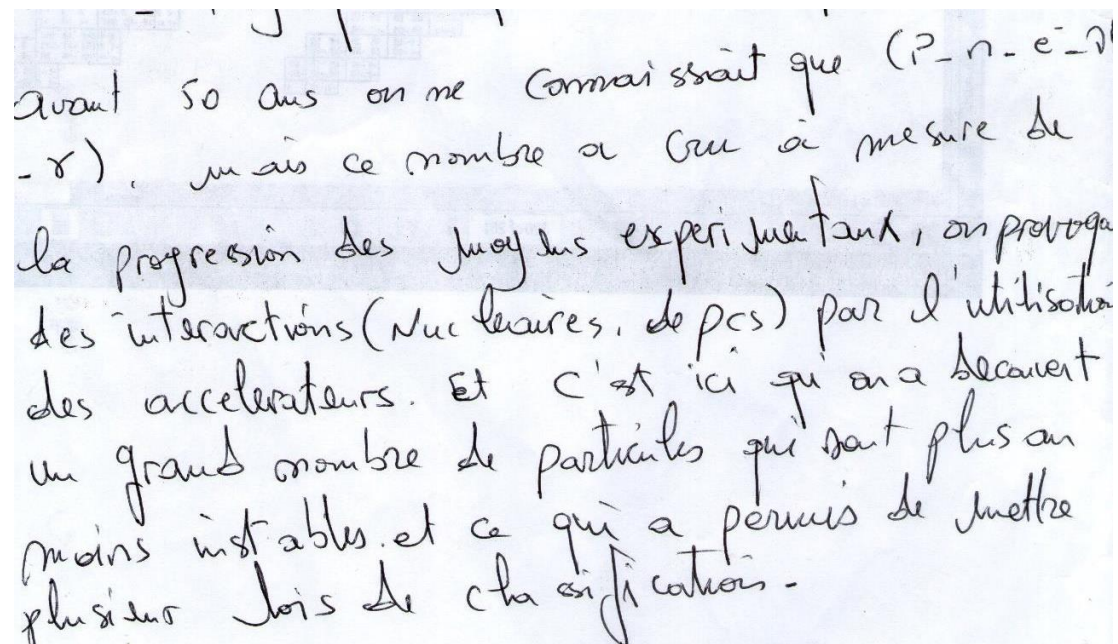 avant 50 ans on ne connaissait que (P_n_e-_
_γ). mais ce nombre a cru à mesure de
la progression des moyens experimentaux, on provoqu
des interactions (Nucleaires. de pcs) par l'utilisation
des accelerateurs. Et c'est ici qu'on a decouvert
un grand nombre de particules qui sont plus ou
moins instables. et ce qui a permis de mettre
plusieur lois de classification.